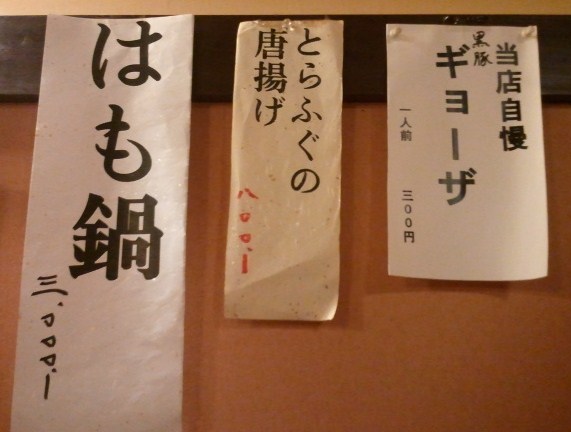 当店自慢
黒豚
ギョーザ
一人前 三00円
とらふぐの
唐揚げ
八〇〇.ー
はも鍋
三、〇〇〇.ー